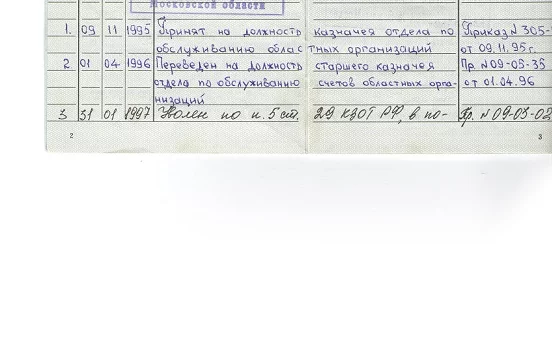 Московской области
1. 09 11 1995 Принят на должность казначея отдела по Приказ N 305-
обслуживанию областных организаций от 09.11.95г.
2 01 04 1996 Переведен на должность старшего казначея Пр. N 09-05-35
отдела по обслуживанию счетов областных орга- от 01.04.96
низаций
3 31 01 1997 Уволен по п. 5 ст. 29 КЗОТ РФ, в по- Пр. N 09-03-02
2 3